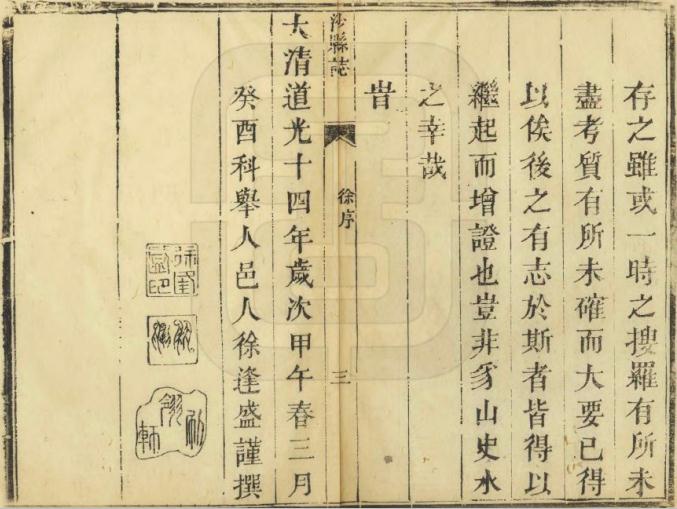 存之雖或一時之搜羅有所未
盡考質有所未確而大要已得
以俟後之有志於斯者皆得以
繼起而增證也豈非豸山史水
之幸哉
旹
沙縣誌
徐序
三
大清道光十四年歲次甲午春三月
癸酉科舉人邑人徐逢盛謹撰
徐逢
盛印